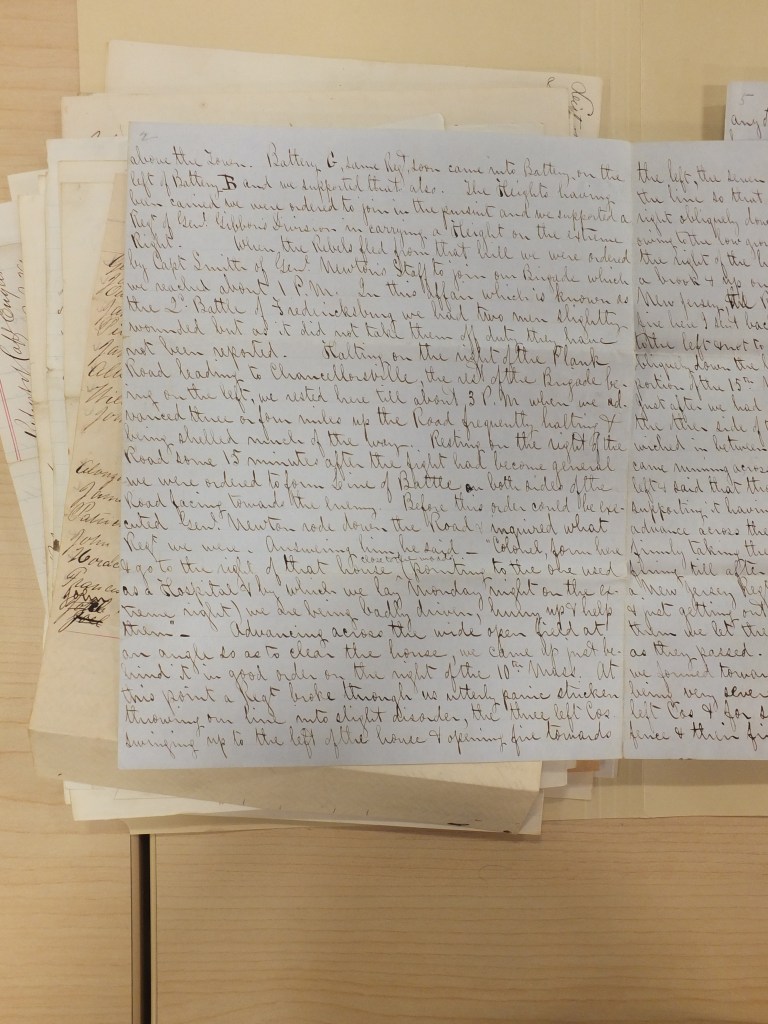 2
above the Town. Battery G, same Regt, soon came into Battery on the
left of Battery B and we supported that also. The Heights having
been carried we were ordered to join in the pursuit and we supported a
Regt of Genl Gibbons Division in carrying a Height on the extreme
Right. When the Rebels fled from that hill we were ordered
by Capt Smith of Genl Newton's Staff to join our Brigade which
we reached about 1 P.M. In this affair which is known as
the 2d Battle of Fredericksburg we had two men slightly
wounded but as it did not take them off duty they have
not been reported. Halting on the right of the Plank
Road leading to Chancellorsville, the rest of the Brigade be-
ing on the left, we rested here till about 3 P.M when we ad-
vanced three or four miles up the Road frequently halting &
being shelled much of the way. Resting on the right of the
Road some 15 minutes after the fight had become general
we were ordered to form Line of Battle on both sides of the
Road facing towards the Enemy. Before this order could be exe-
cuted Genl Newton rode down the Road & inquired what
Regt we were. Answering him he said — "Colonel, form here
& go to the right of that house (pointing to the one used
as a Hospital & by which we lay Monday night on the ex-
treme right) we are being badly driven, hurry up & help
them" — Advancing across the wide open field at
an angle so as to clear the house, we came up just be-
hind it in good order on the right of the 10th Mass. At
this point a Regt broke through us utterly panic stricken
throwing our line into slight disorder, the three left Cos
swinging up to the left of the house & opening fire towards
the left, the seven
the line so that
right obliquely dow
owing to the low grou
the right of the h
a brook & up on
New Jersey, the
line here I sent bac
the left & not to
bliquely down the
portion of the 15th
Just after we had
the other side of
wiched in between
came running across
left & said that th
supporting it having
advance across the
firmly taking the
firing till after
a New Jersey Regt
& just getting out
them we let the
as they passed.
we formed towar
being very sever
left Cos & for s
fence & their fir
5
any
8
John